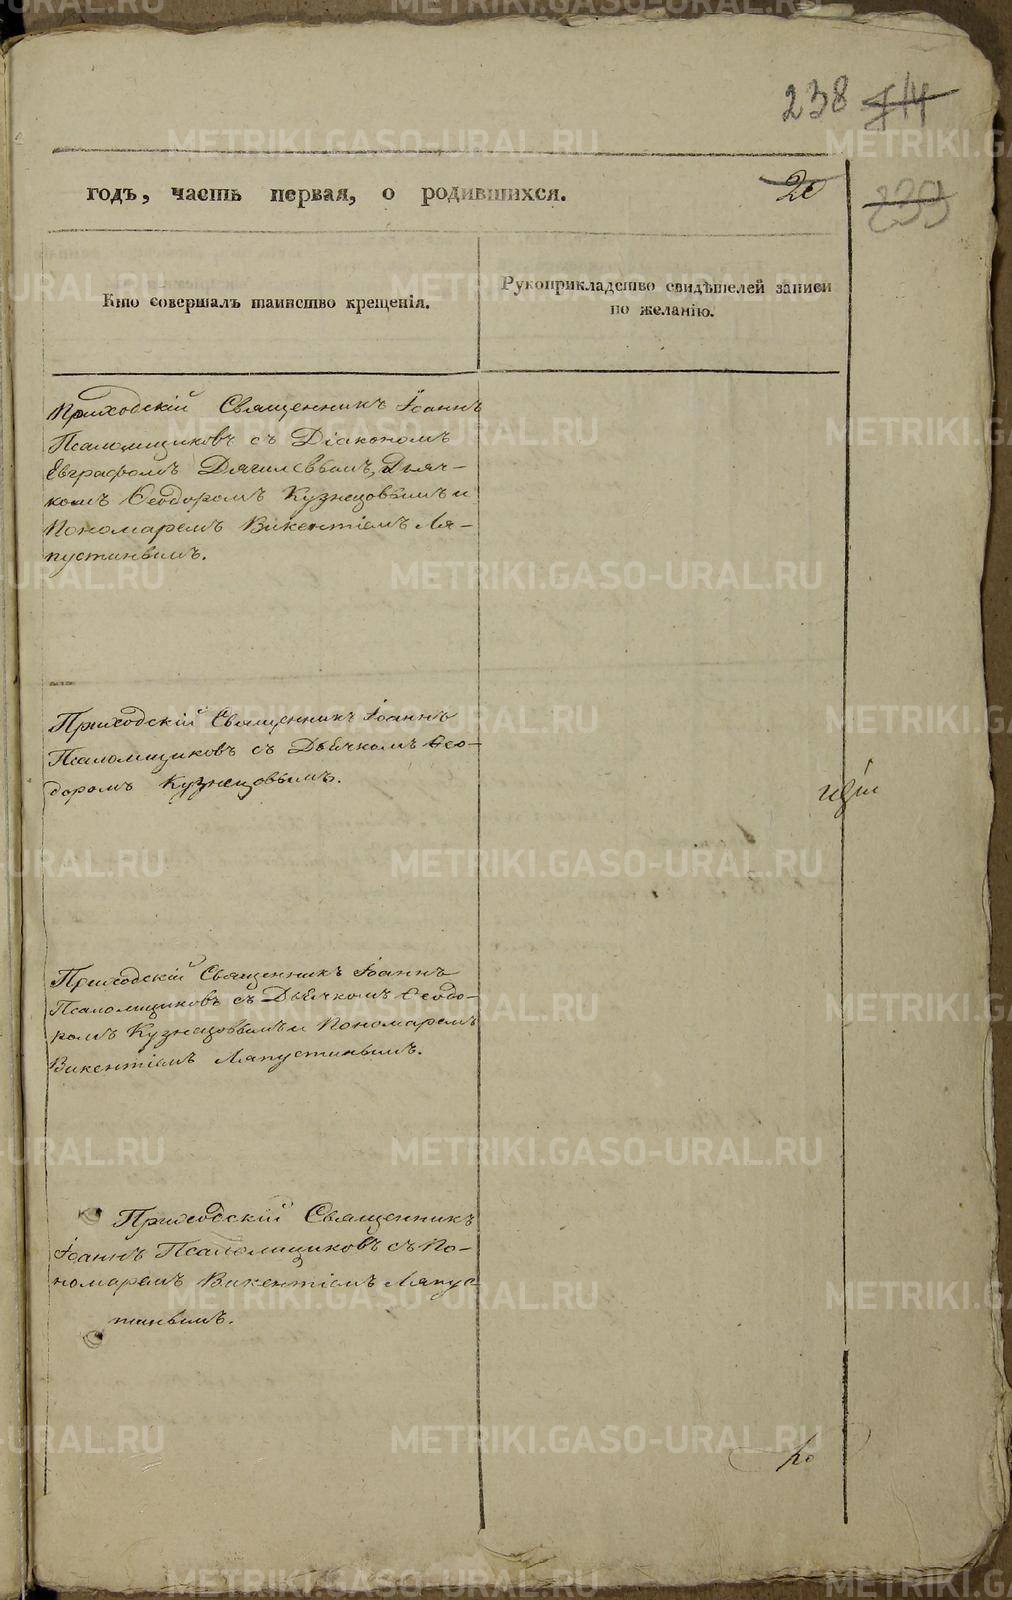 238 714
годъ, часть первая, о родившихся. 20
239
Кто совершалъ таинство крещенія.
Рукоприкладство свидѣтелей записи
по желанію.
Приходскій Священникъ Іоаннъ
Псаломщиковъ съ Діакономъ
Евграфомъ Дягилевымъ, Дьяч-
комъ Ѳеодоромъ Кузнецовымъ и
Пономаремъ Викентіемъ Ля-
пустинымъ.
Приходскій Священникъ Іоаннъ
Псаломщиковъ съ Дьячкомъ Ѳео-
доромъ Кузнецовымъ.
Приходскій Священникъ Іоаннъ
Псаломщиковъ съ Дьячкомъ Ѳеодо-
ромъ Кузнецовымъ и Пономаремъ
Викентіемъ Ляпустинымъ.
Приходскій Священникъ
Іоаннъ Псаломщиковъ съ По-
номаремъ Викентіемъ Ляпус-
тинымъ.
METRIKI.GASO-URAL.RU